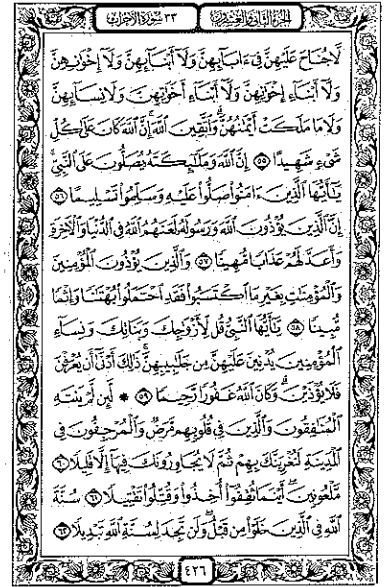 الجزء الثاني والعشرون ٣٣ سورة الأحزاب
لَّا جُنَاحَ عَلَيْهِنَّ فِىٓ ءَابَآئِهِنَّ وَلَآ أَبْنَآئِهِنَّ وَلَآ إِخْوَٰنِهِنَّ
وَلَآ أَبْنَآءِ إِخْوَٰنِهِنَّ وَلَآ أَبْنَآءِ أَخَوَٰتِهِنَّ وَلَا نِسَآئِهِنَّ
وَلَا مَا مَلَكَتْ أَيْمَٰنُهُنَّ وَٱتَّقِينَ ٱللَّهَ إِنَّ ٱللَّهَ كَانَ عَلَىٰ كُلِّ
شَىْءٍ شَهِيدًا ٥٥ إِنَّ ٱللَّهَ وَمَلَٰٓئِكَتَهُۥ يُصَلُّونَ عَلَى ٱلنَّبِىِّ
يَٰٓأَيُّهَا ٱلَّذِينَ ءَامَنُوا۟ صَلُّوا۟ عَلَيْهِ وَسَلِّمُوا۟ تَسْلِيمًا ٥٦
إِنَّ ٱلَّذِينَ يُؤْذُونَ ٱللَّهَ وَرَسُولَهُۥ لَعَنَهُمُ ٱللَّهُ فِى ٱلدُّنْيَا وَٱلْءَاخِرَةِ
وَأَعَدَّ لَهُمْ عَذَابًا مُّهِينًا ٥٧ وَٱلَّذِينَ يُؤْذُونَ ٱلْمُؤْمِنِينَ
وَٱلْمُؤْمِنَٰتِ بِغَيْرِ مَا ٱكْتَسَبُوا۟ فَقَدِ ٱحْتَمَلُوا۟ بُهْتَٰنًا وَإِثْمًا
مُّبِينًا ٥٨ يَٰٓأَيُّهَا ٱلنَّبِىُّ قُل لِّأَزْوَٰجِكَ وَبَنَاتِكَ وَنِسَآءِ
ٱلْمُؤْمِنِينَ يُدْنِينَ عَلَيْهِنَّ مِن جَلَٰبِيبِهِنَّ ذَٰلِكَ أَدْنَىٰٓ أَن يُعْرَفْنَ
فَلَا يُؤْذَيْنَ وَكَانَ ٱللَّهُ غَفُورًا رَّحِيمًا ٥٩ ۞ لَّئِن لَّمْ يَنتَهِ
ٱلْمُنَٰفِقُونَ وَٱلَّذِينَ فِى قُلُوبِهِم مَّرَضٌ وَٱلْمُرْجِفُونَ فِى
ٱلْمَدِينَةِ لَنُغْرِيَنَّكَ بِهِمْ ثُمَّ لَا يُجَاوِرُونَكَ فِيهَآ إِلَّا قَلِيلًا ٦٠
مَّلْعُونِينَ أَيْنَمَا ثُقِفُوٓا۟ أُخِذُوا۟ وَقُتِّلُوا۟ تَقْتِيلًا ٦١ سُنَّةَ
ٱللَّهِ فِى ٱلَّذِينَ خَلَوْا۟ مِن قَبْلُ وَلَن تَجِدَ لِسُنَّةِ ٱللَّهِ تَبْدِيلًا ٦٢
٤٢٦